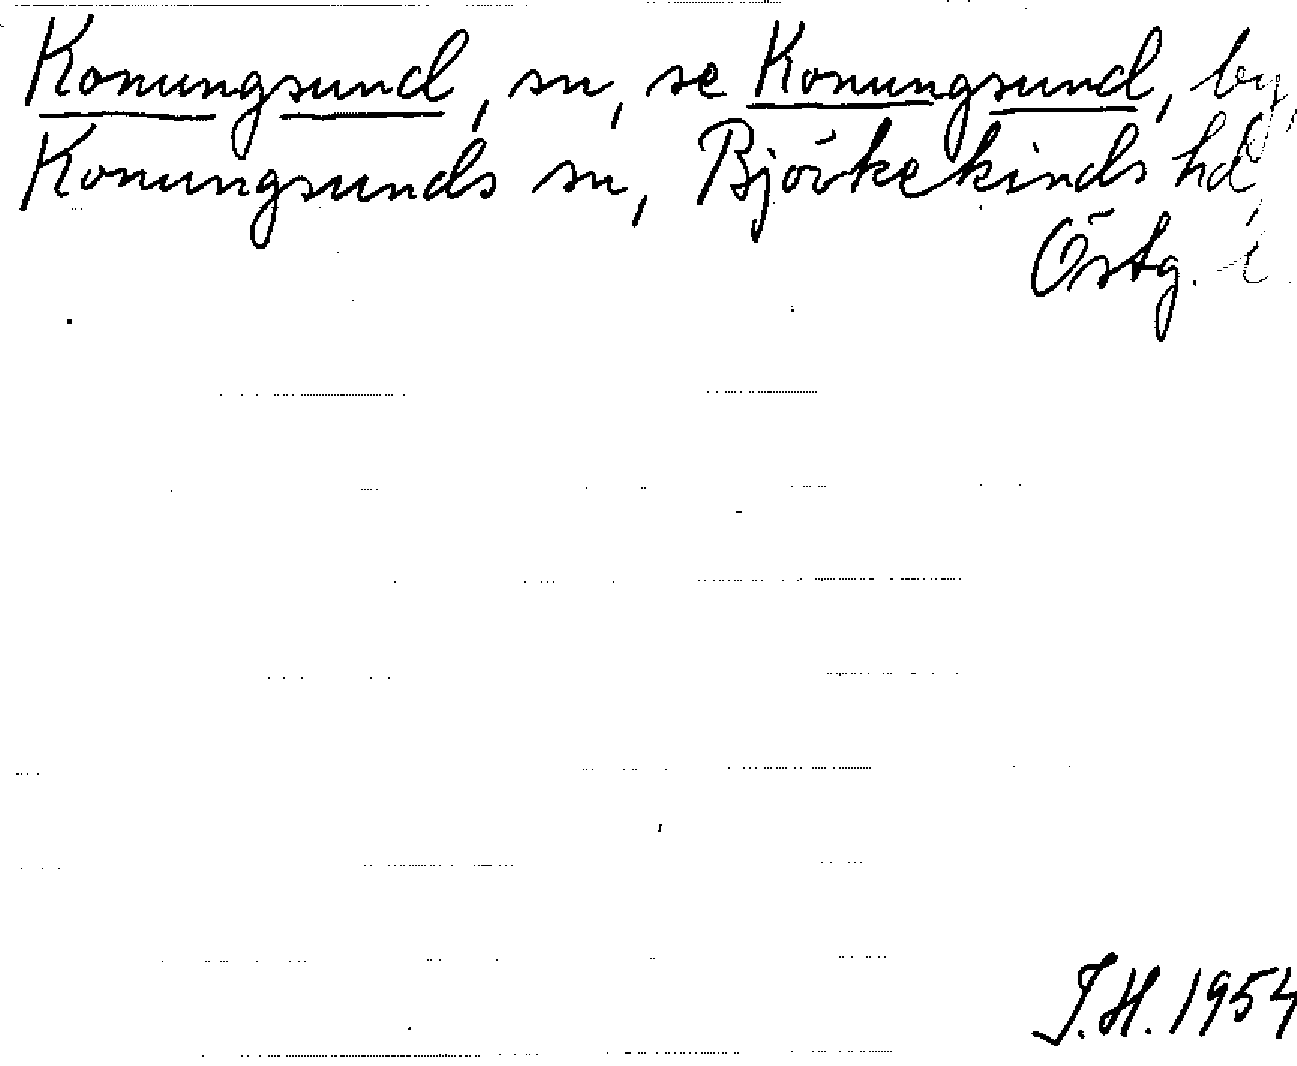 Konungsund, sn, se Konungsund, by,
Konungsunds sn, Björkekinds hd,
Östg. l.
I.H. 1954